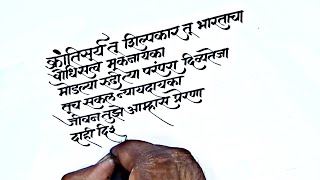 क्रांतिसूर्य तू शिल्पकार तू भारताचा
बोधिसत्व मूकनायका
मोडल्या रुढी त्या परंपरा दिव्यतेजा
तूच सकल न्यायदायका
जीवन तुझे आम्हास प्रेरणा
दाही दिश